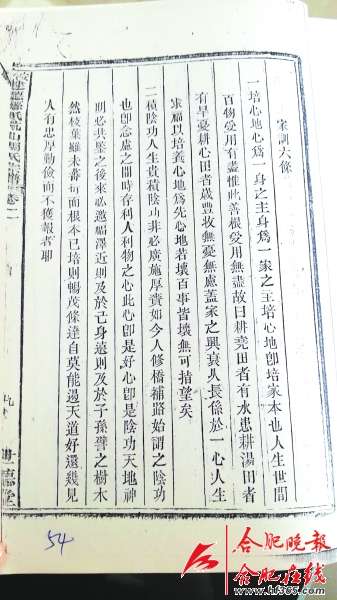 家訓六條
一培心地心爲一身之主身爲一家之主培心地卽培家本也人生世間
百物受用有盡惟此善根受用無盡故曰耕堯田者有水患耕湯田者
有旱憂耕心田者歲豐收無憂無慮蓋家之興衰人長係於一心人生
求福以培養心地爲先心地若壞百事皆壞無可措望矣
二積陰功人生貴積陰功非必廣施厚賚如今人修橋補路始謂之陰功
也卽念慮之間時存利人利物之心此心卽是好心卽是陰功天地神
明必共鑒之後來必邀福澤近則及於己身遠則及於子孫譬之樹木
然枝葉雖未暢而根本已培則暢茂條達自莫能遏天道好還幾見
人有忠厚勤儉而不獲報者耶
卷二
德堂
54
合肥晚報
合肥在线
www.hf365.com